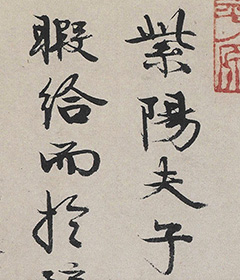 紫陽夫子
暇給而於